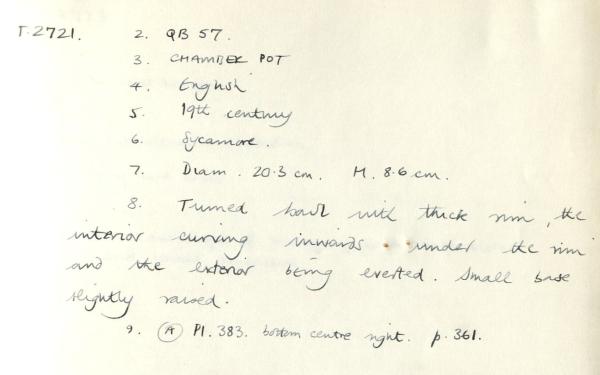 T.2721. 2. QB 57.
3. CHAMBER POT
4. English
5. 19th century
6. Sycamore.
7. Diam. 20.3 cm. H. 8.6 cm.
8. Turned bowl with thick rim, the
interior curving inwards under the rim
and the exterior being everted. Small base
slightly raised.
9. (A) Pl. 383. bottom centre right. p. 361.